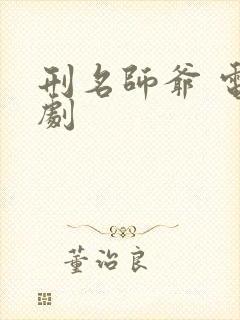 刑名師爺 電
劇
董治良